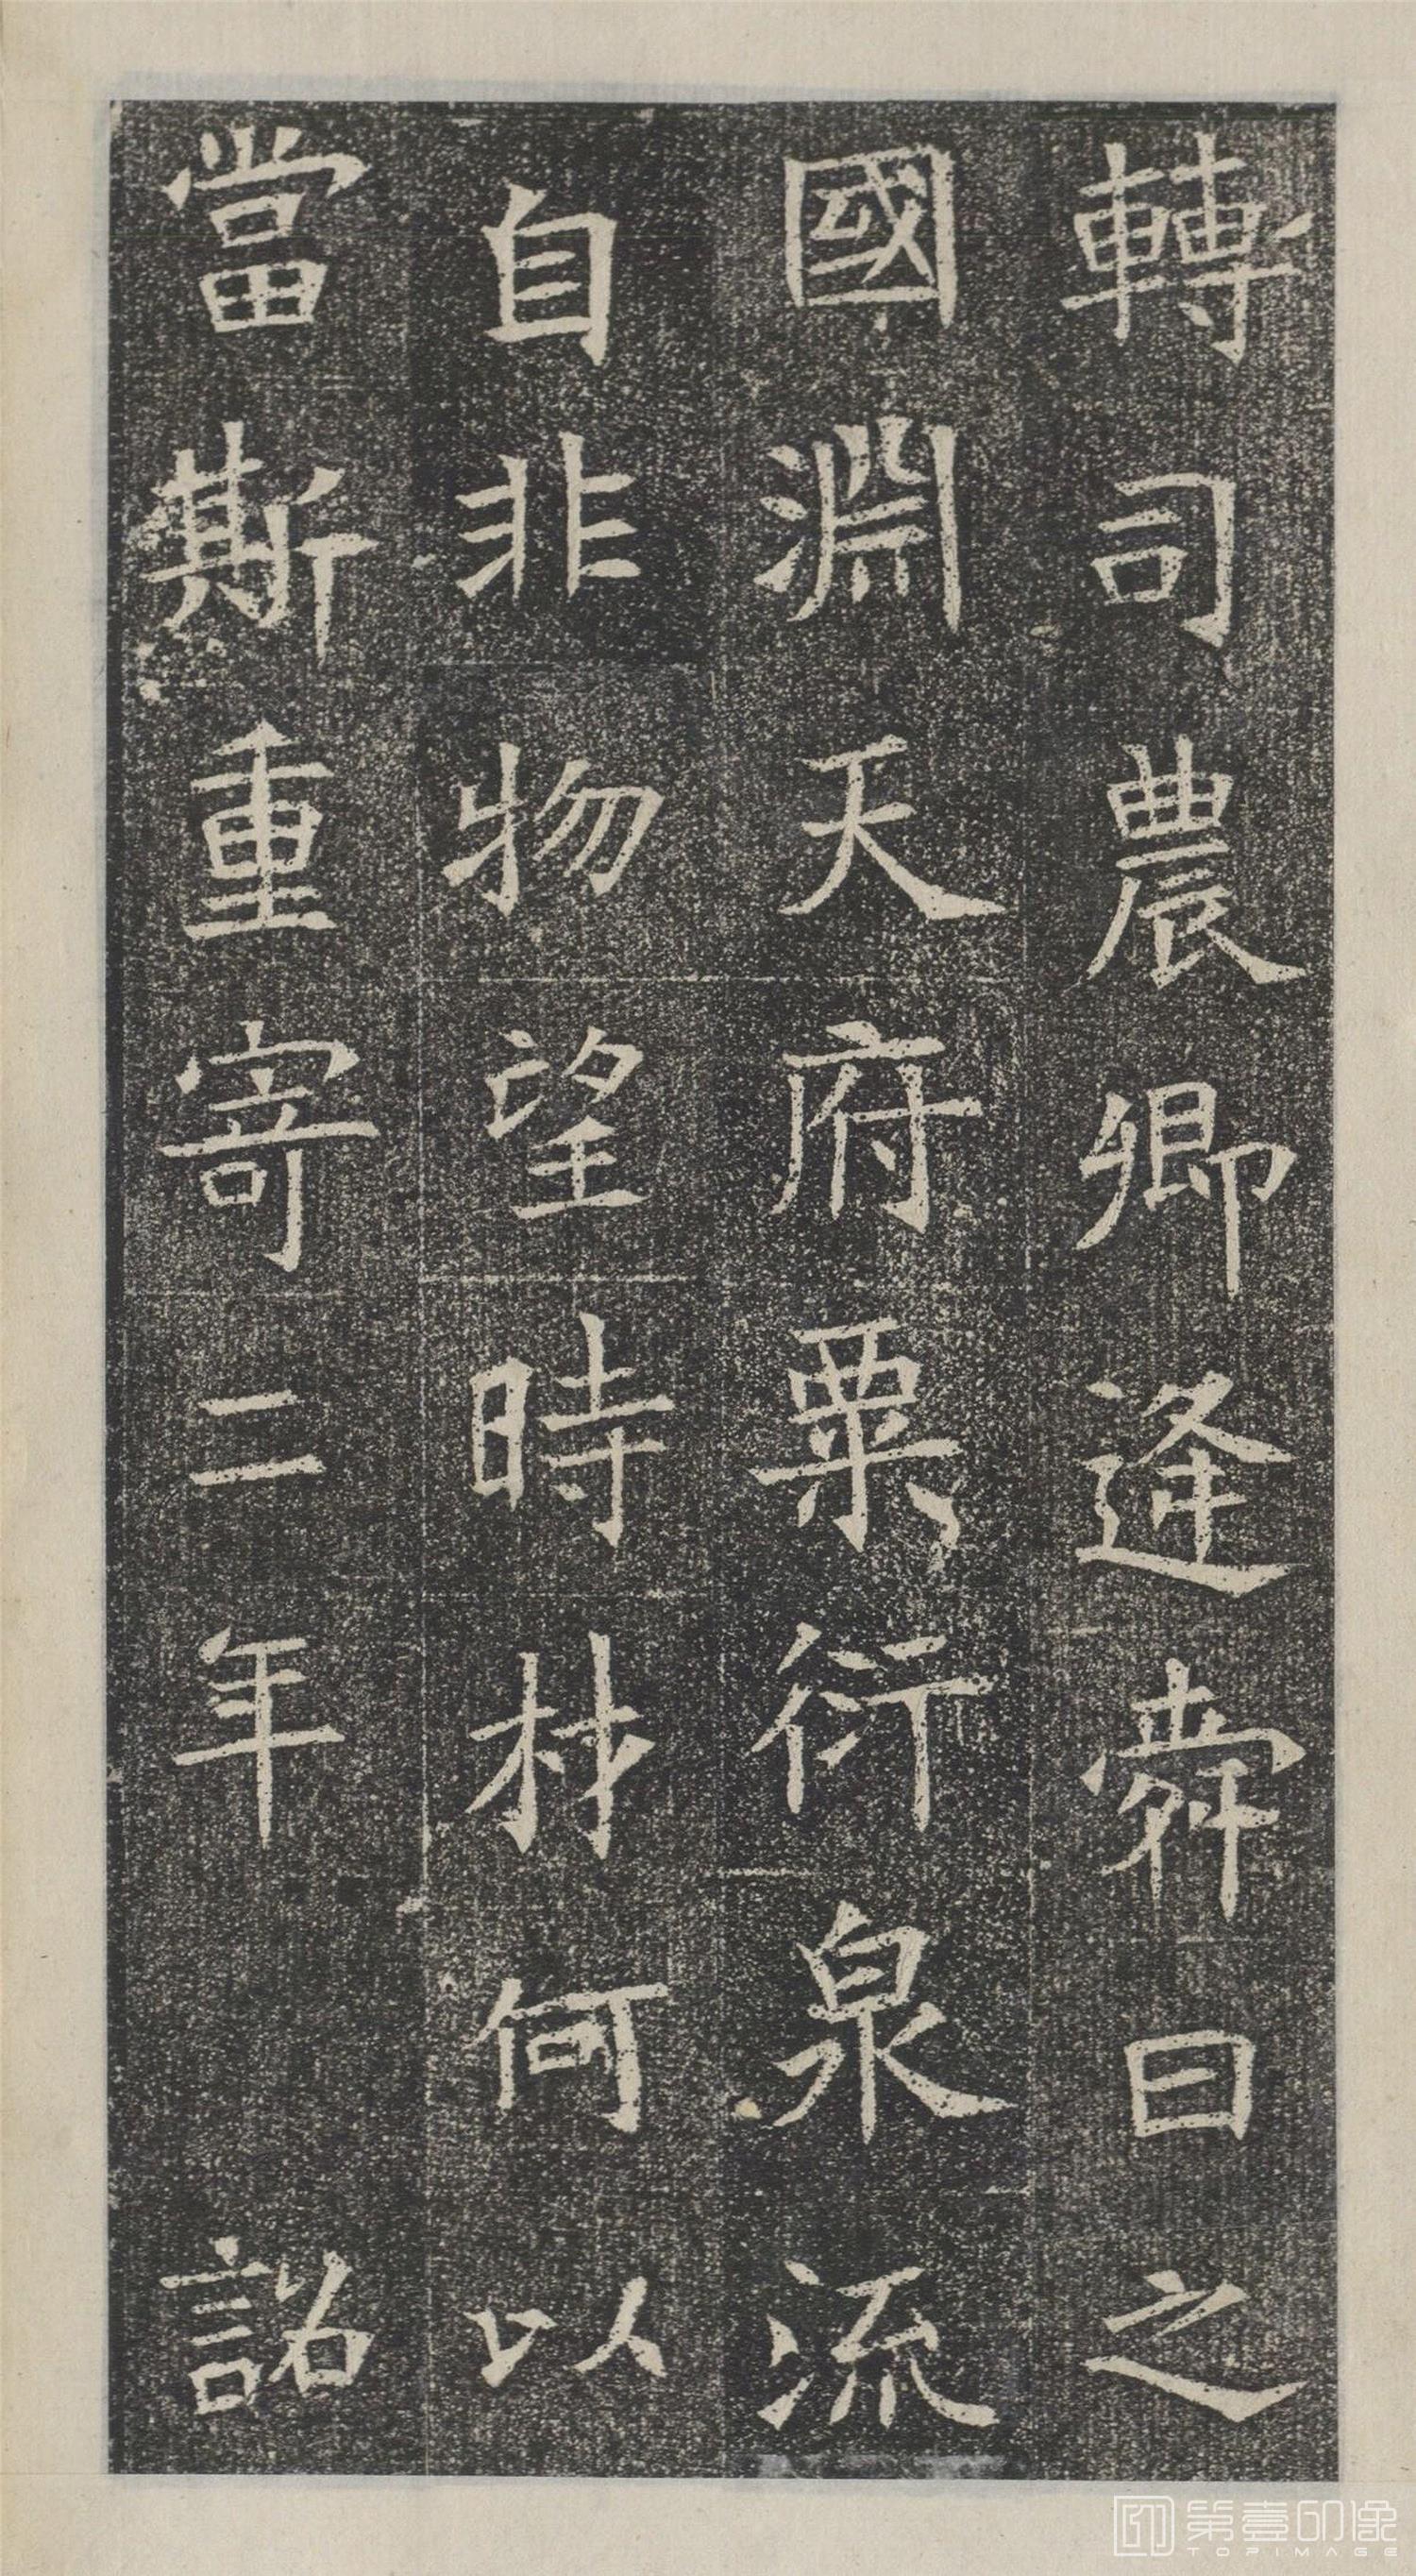 轉司農卿逄舜曰之
國淵天府粟衍泉流
自非物望時材何以
當斯重寄二年 詔
第壹印像
TOPIMAGE